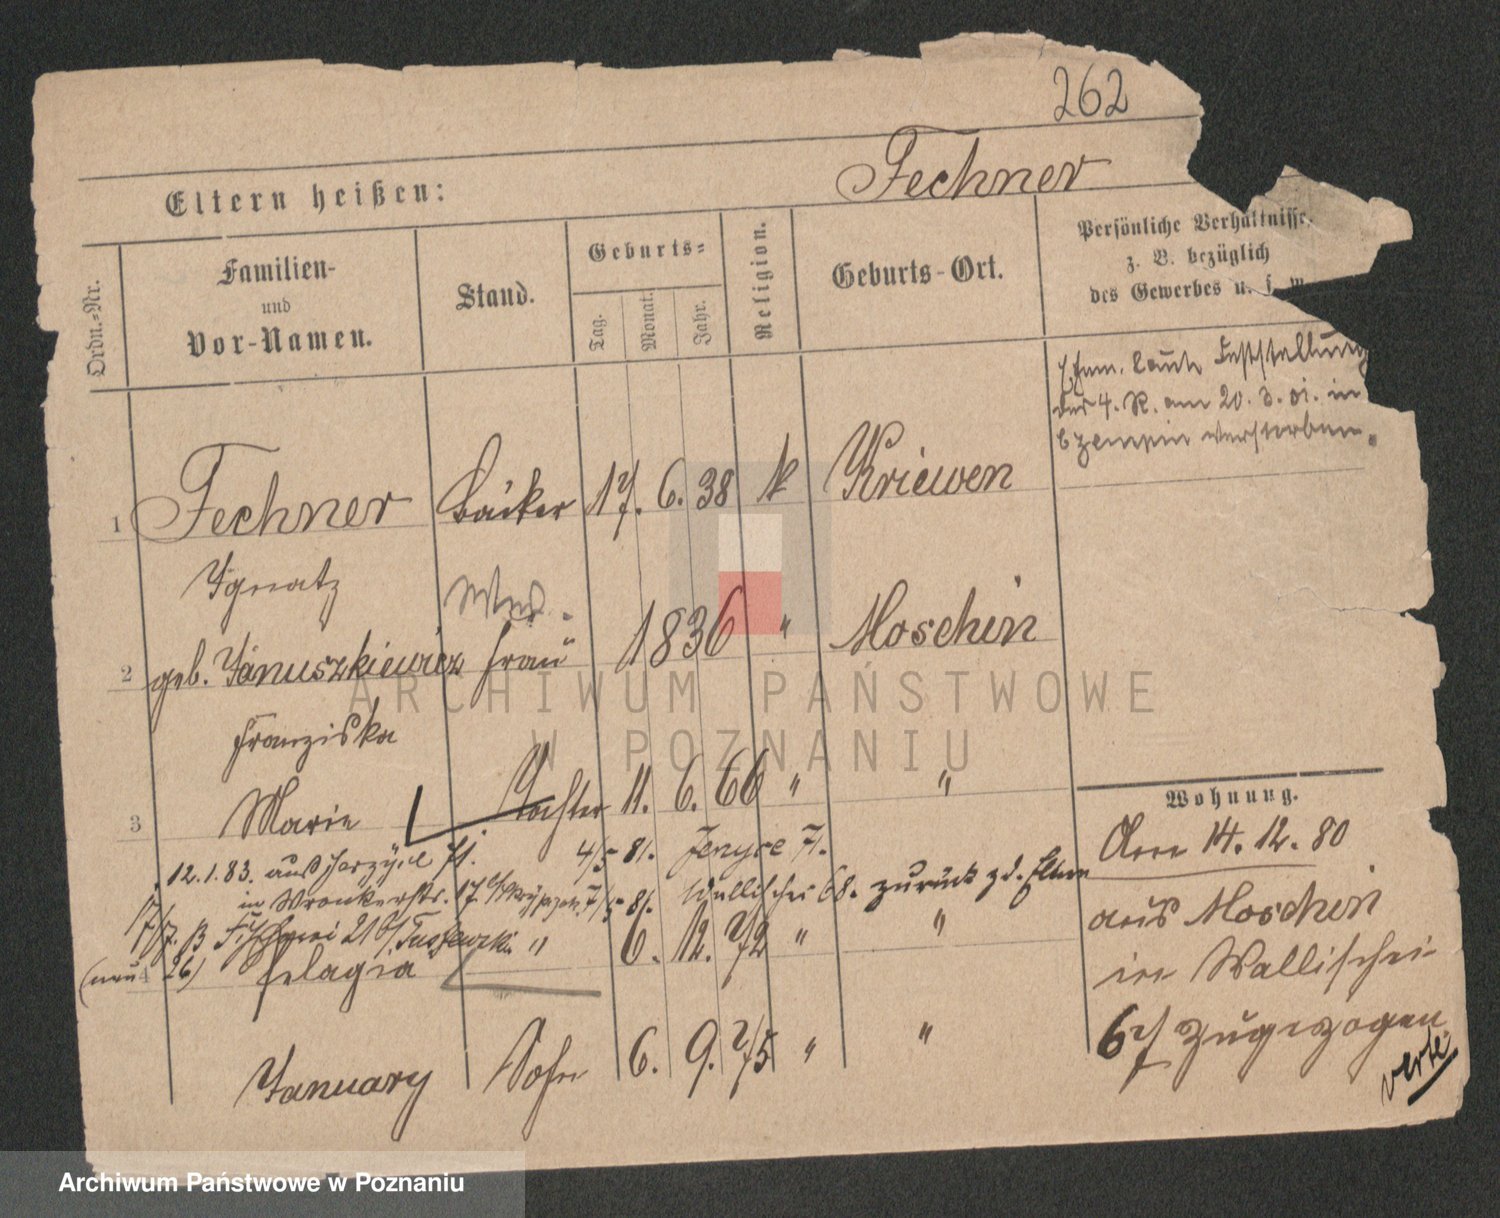 262
Fechner
Eltern heißen:
Ordn.-Nr.
Familien-
und
Vor-Namen.
Stand.
Geburts=
Tag.
Monat.
Jahr.
Religion.
Geburts-Ort.
Persönliche Verhältnisse,
z. B. bezüglich
des Gewerbes u. s. w.
Ehem. laut Feststellung
des 4. R. am 20. 3. 01. in
Czempin verstorben.
1 Fechner Bäcker 17. 6. 38 k Kriewen
Ignatz
Wwe.
2 geb. Januszkiewicz Frau 1836 " Moschin
Franziska
3 Marie Tochter 11. 6. 66 " "
12.1.83. 4/5 81.
in Wronkerstr. 17 7/5 81. Wallischei 68. zurück z. d. Eltern
Fischerei 21
(neu 26)
4 Pelagia " 6. 12. 72 " "
January Sohn 6. 9. 75 " "
Wohnung.
Am 14. 12. 80
aus Moschin
in Wallischei
67 zugezogen
verte
ARCHIWUM PAŃSTWOWE
W POZNANIU
Archiwum Państwowe w Poznaniu